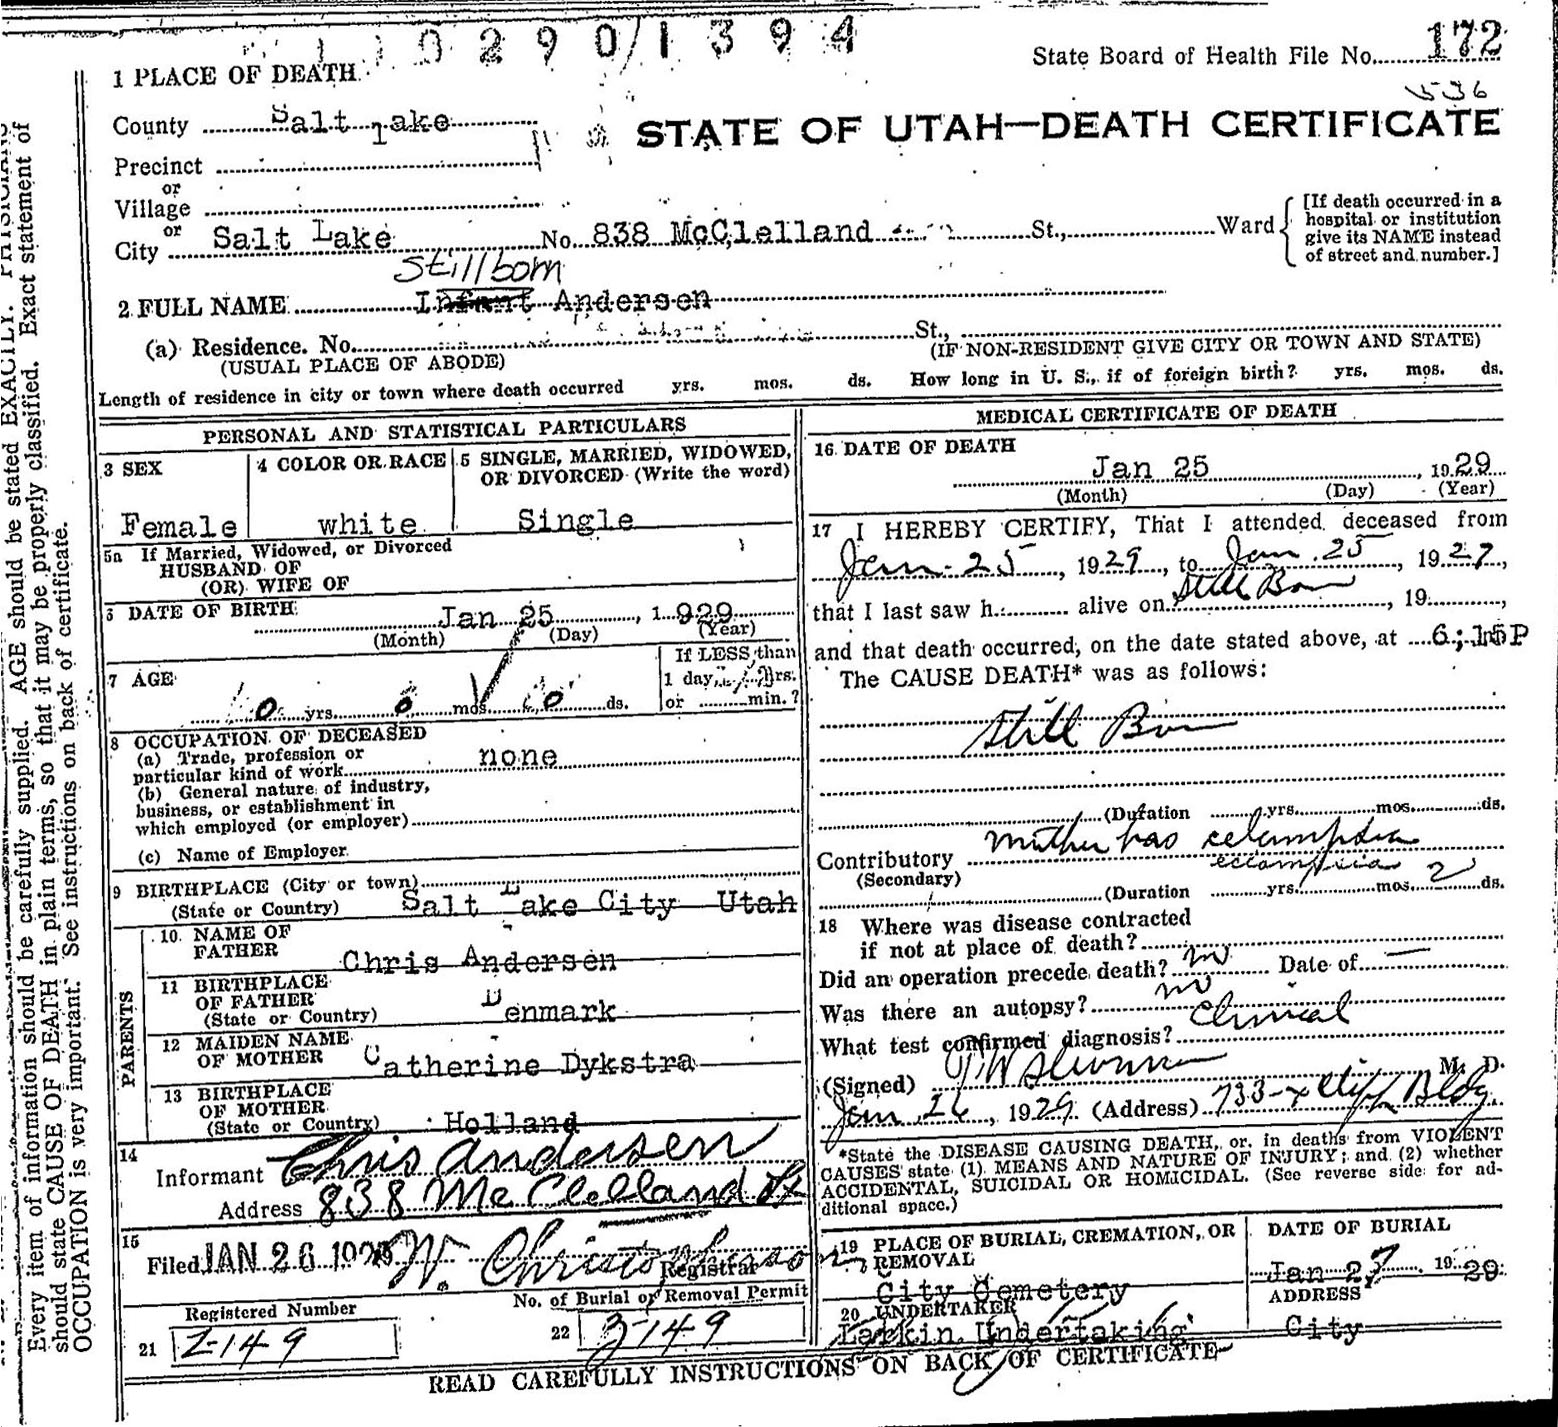 0 2 9 0 1 3 9 4
State Board of Health File No. 172
536
1 PLACE OF DEATH
County Salt Lake
STATE OF UTAH—DEATH CERTIFICATE
Precinct
or
Village
or
City Salt Lake No. 838 McClelland St., Ward
[If death occurred in a hospital or institution give its NAME instead of street and number.]
Stillborn
2 FULL NAME Infant Andersen
(a) Residence. No. St.,
(USUAL PLACE OF ABODE) (IF NON-RESIDENT GIVE CITY OR TOWN AND STATE)
Length of residence in city or town where death occurred yrs. mos. ds. How long in U. S., if of foreign birth? yrs. mos. ds.
PERSONAL AND STATISTICAL PARTICULARS
3 SEX 4 COLOR OR RACE 5 SINGLE, MARRIED, WIDOWED,
OR DIVORCED (Write the word)
Female white Single
5a If Married, Widowed, or Divorced
HUSBAND OF
(OR) WIFE OF
6 DATE OF BIRTH Jan 25, 1929
(Month) (Day) (Year)
7 AGE
If LESS than
1 day, hrs.
0 yrs. 0 mos. 0 ds. or min.?
8 OCCUPATION OF DECEASED
(a) Trade, profession or
particular kind of work none
(b) General nature of industry,
business, or establishment in
which employed (or employer)
(c) Name of Employer
9 BIRTHPLACE (City or town)
(State or Country) Salt Lake City Utah
PARENTS
10 NAME OF
FATHER Chris Andersen
11 BIRTHPLACE
OF FATHER
(State or Country) Denmark
12 MAIDEN NAME
OF MOTHER Catherine Dykstra
13 BIRTHPLACE
OF MOTHER
(State or Country) Holland
14
Informant Chris Andersen
Address 838 McClelland St
15
Filed JAN 26 1929 W. Christopherson
Registrar
Registered Number No. of Burial or Removal Permit
21 2-149 22 3-149
MEDICAL CERTIFICATE OF DEATH
16 DATE OF DEATH
Jan 25, 1929
(Month) (Day) (Year)
17 I HEREBY CERTIFY, That I attended deceased from
Jan. 25, 1929, to Jan. 25, 1927,
that I last saw h. alive on Still Born, 19,
and that death occurred, on the date stated above, at 6;15P
The CAUSE DEATH* was as follows:
Still Born
(Duration yrs. mos. ds.
Contributory Mother has eclampsia
(Secondary) eclampsia
(Duration yrs. mos. 2 ds.
18 Where was disease contracted
if not at place of death?
Did an operation precede death? no Date of —
Was there an autopsy? no
What test confirmed diagnosis? Clinical
(Signed) M. D.
Jan 26, 1929 (Address) Bldg.
*State the DISEASE CAUSING DEATH, or in deaths from VIOLENT
CAUSES state (1) MEANS AND NATURE OF INJURY; and (2) whether
ACCIDENTAL, SUICIDAL OR HOMICIDAL. (See reverse side for ad-
ditional space.)
19 PLACE OF BURIAL, CREMATION, OR
REMOVAL
City Cemetery
DATE OF BURIAL
Jan 27 1929
20 UNDERTAKER
Larkin Undertaking
ADDRESS
City
READ CAREFULLY INSTRUCTIONS ON BACK OF CERTIFICATE
Every item of information should be carefully supplied. AGE should be stated EXACTLY. PHYSICIANS
should state CAUSE OF DEATH in plain terms, so that it may be properly classified. Exact statement of
OCCUPATION is very important. See instructions on back of certificate.